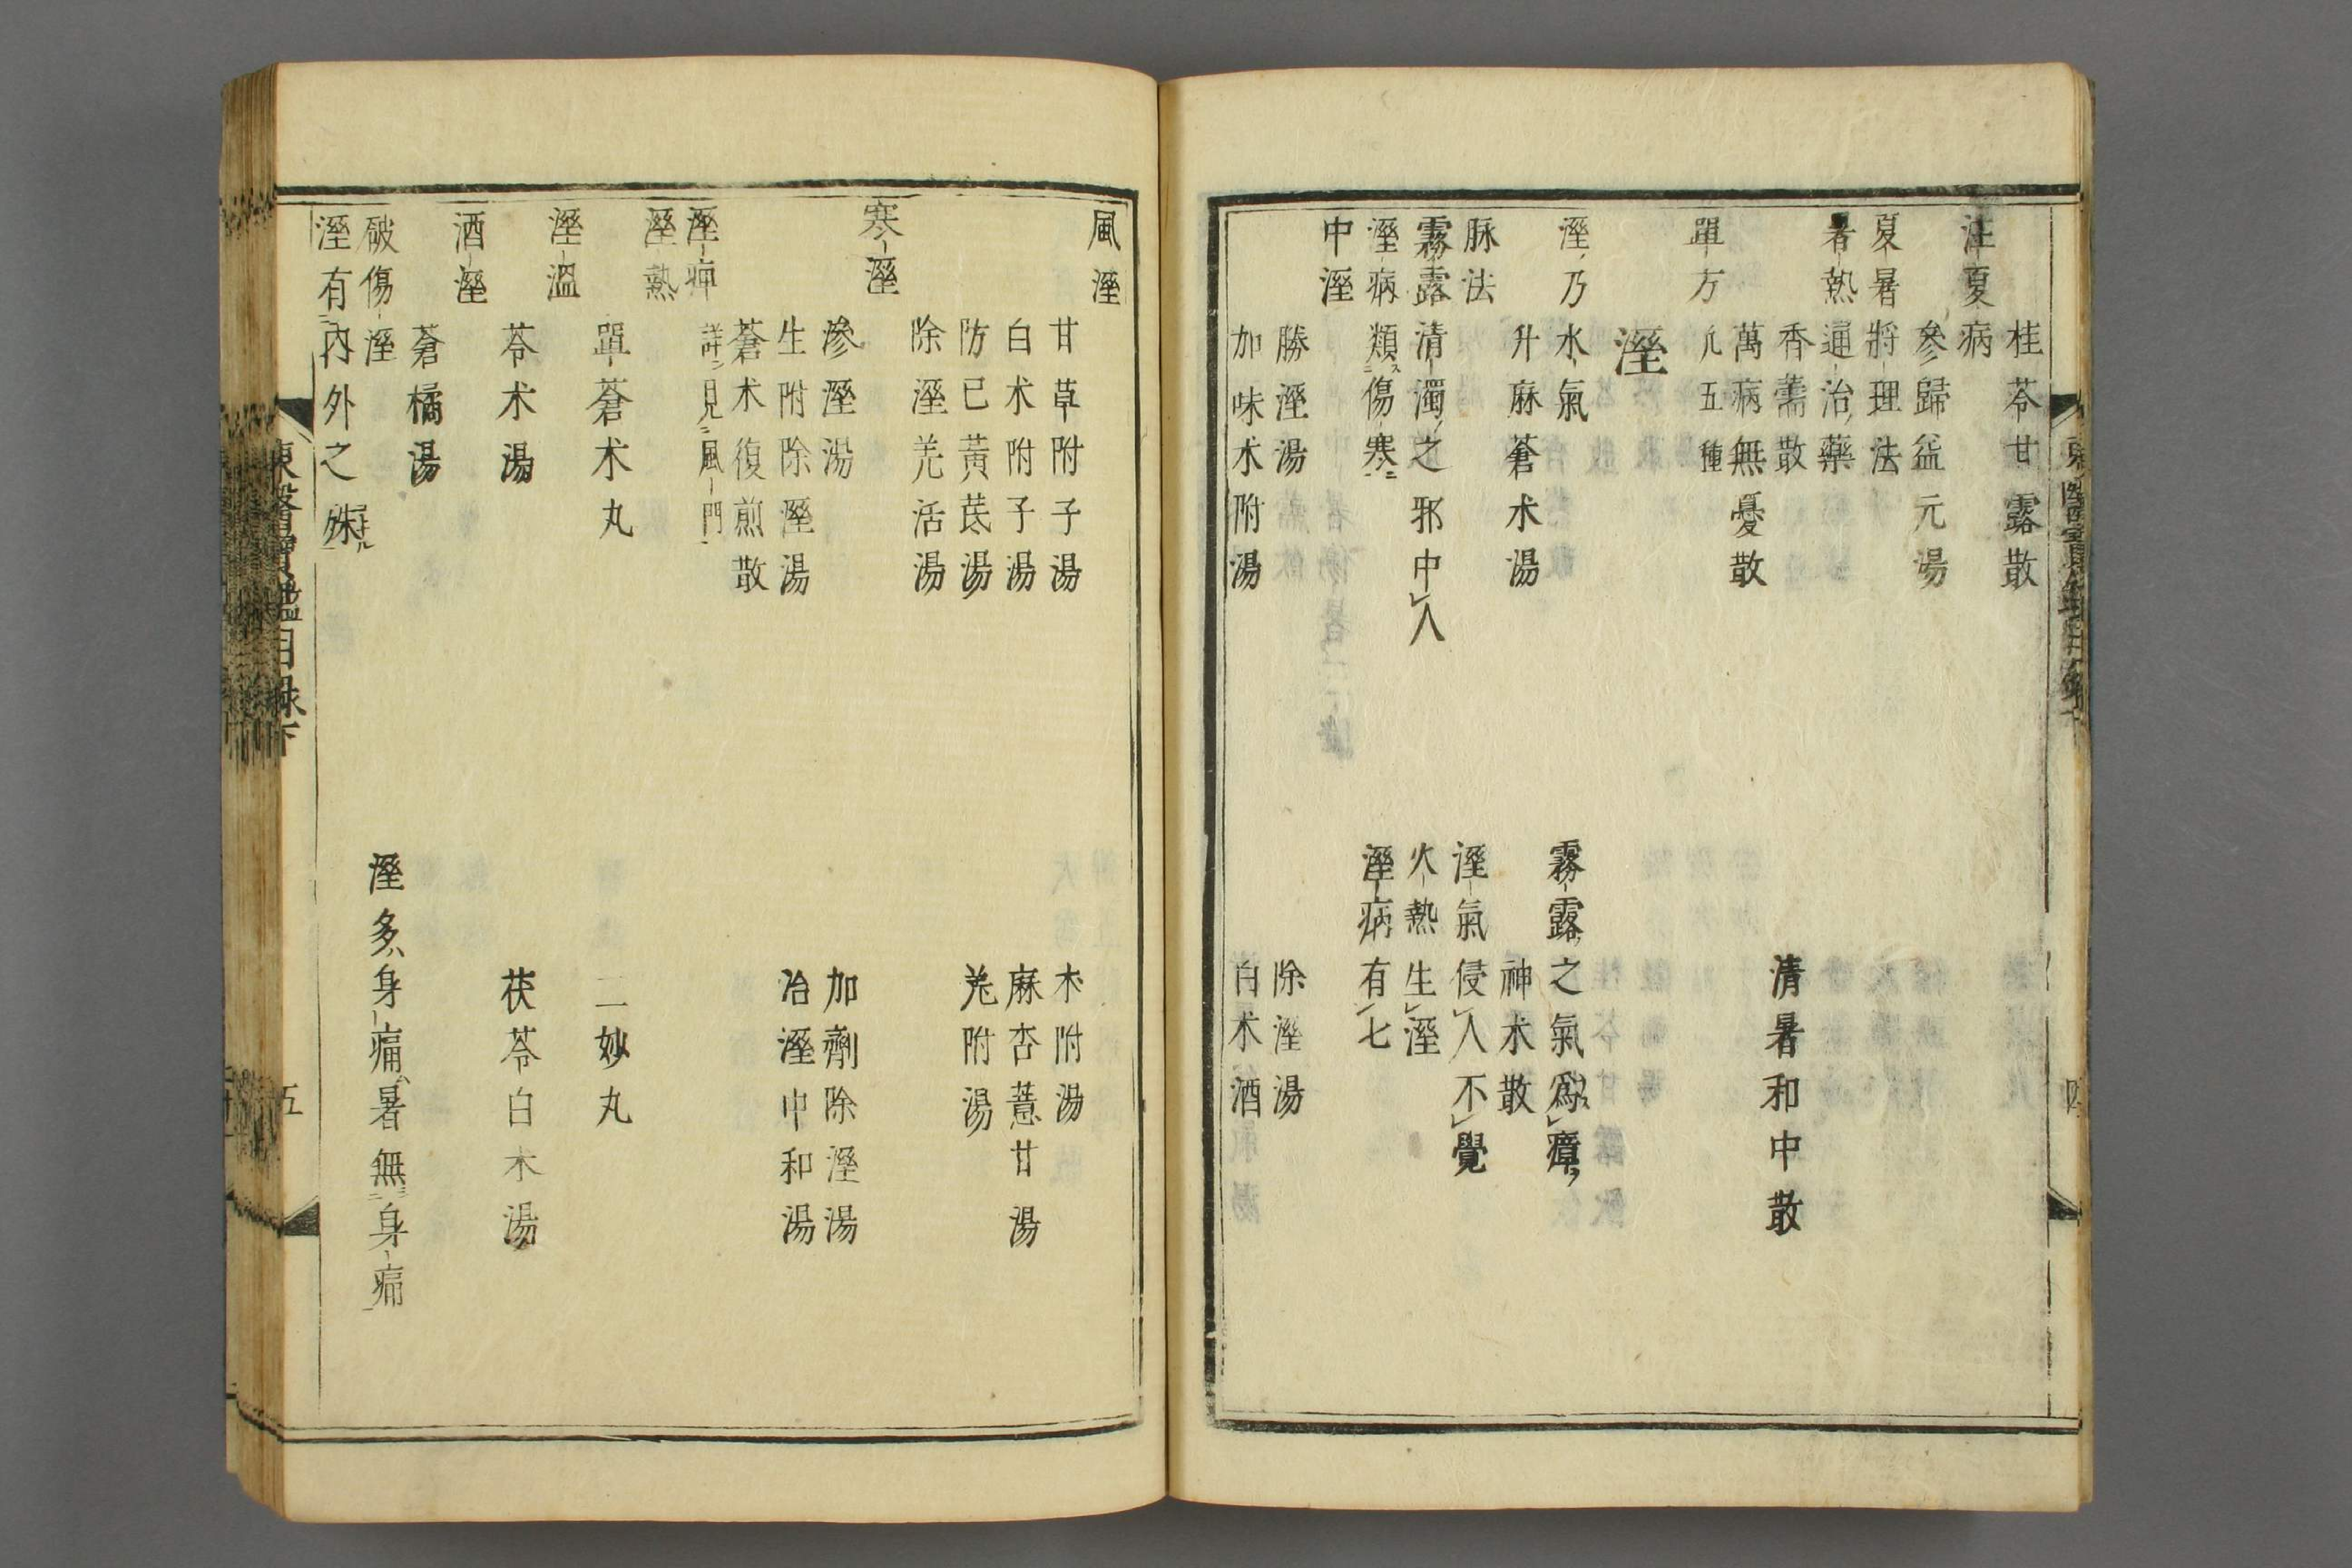 桂苓甘露散
注夏病
參歸益元湯
夏暑將理法
暑熱通治藥
香薷散
清暑和中散
萬病無憂散
單方 凡五種
溼
溼乃水氣
霧露之氣爲瘴
升麻蒼朮湯
神朮散
脉法
溼氣侵人不覺
霧露清濁之邪中人
火熱生溼
溼病類傷寒
溼病有七
中溼
勝溼湯
除溼湯
加味朮附湯
白朮酒
風溼
甘草附子湯
朮附湯
白朮附子湯
麻杏薏甘湯
防已黃芪湯
羗附湯
除溼羌活湯
寒溼
滲溼湯
加劑除溼湯
生附除溼湯
治溼中和湯
蒼朮復煎散
溼痺 詳見風門
溼熱
單蒼朮丸
二妙丸
溼溫
苓朮湯
茯苓白朮湯
酒溼
蒼橘湯
破傷溼
溼多身痛暑無身痛
溼有内外之殊
東醫寶鑑目録下
五